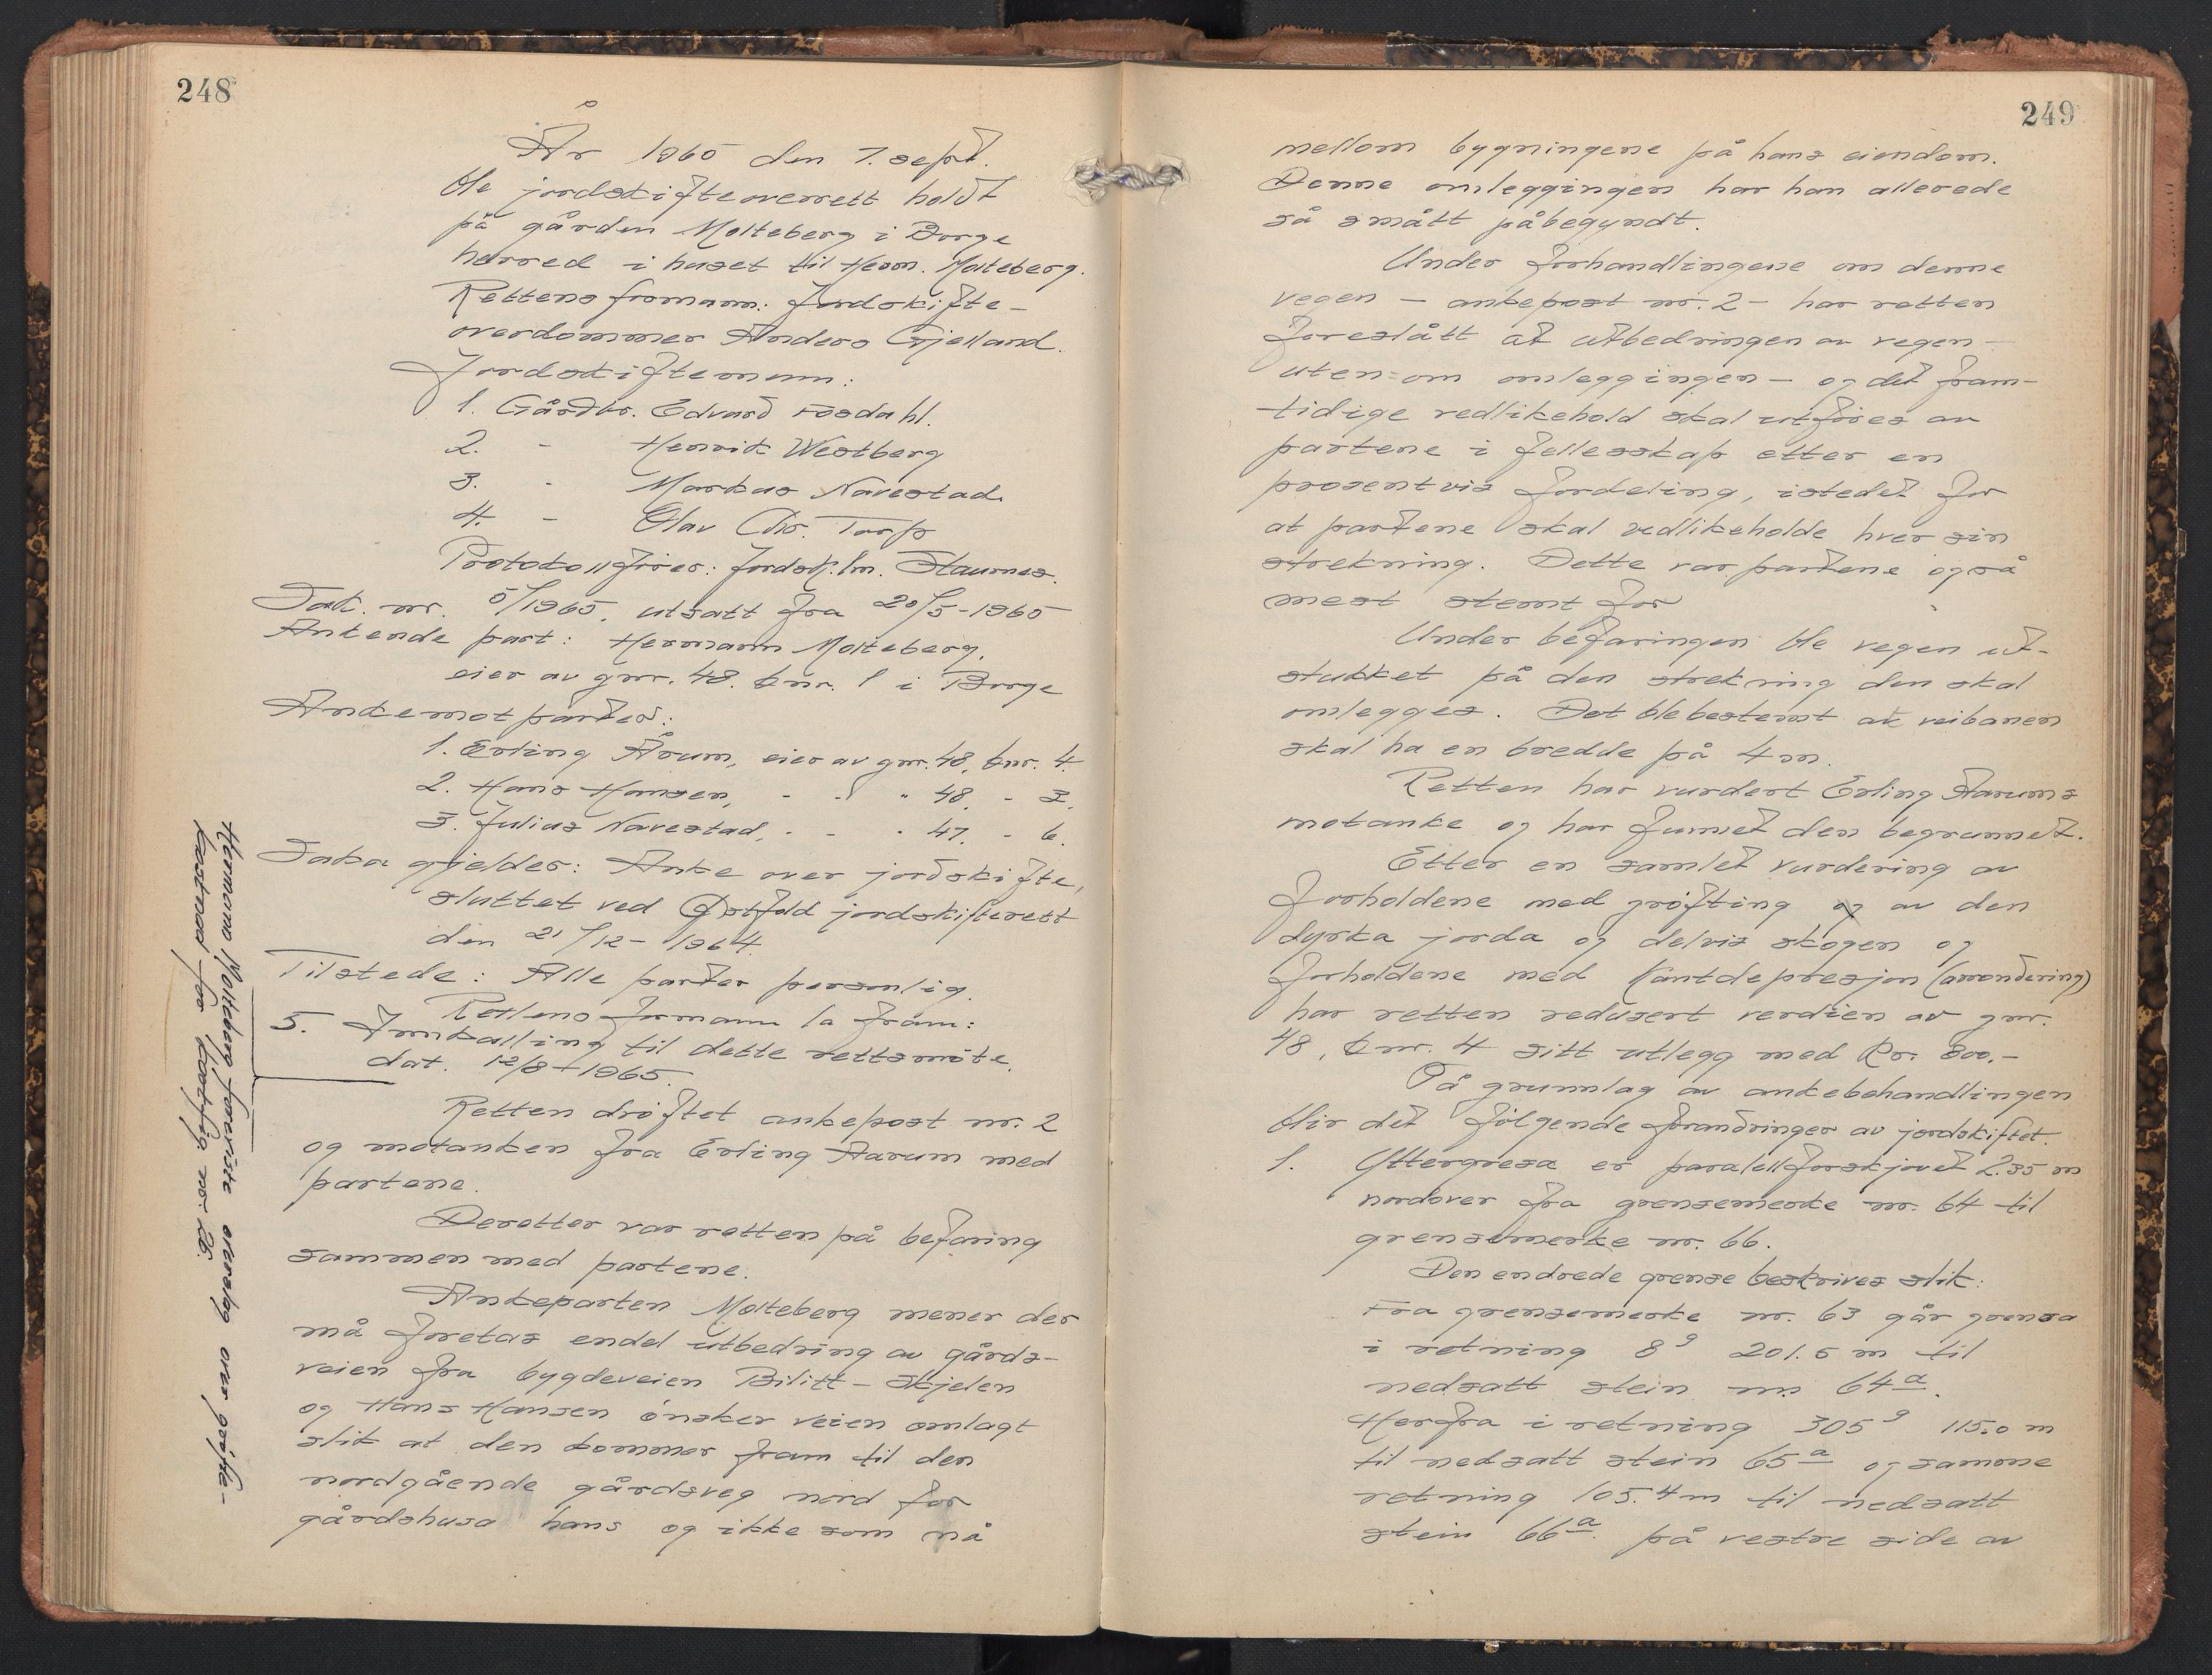 248
År 1965 den 7. sept.
ble jordskifteoverrett holdt
på gården Molteberg i Borge
herred i huset til Herm. Molteberg.
Rettens fromann: Jordskifte-
overdommer Anders Gjelland.
Jordskiftemenn:
1. Gårdbr. Edvard Fosdahl.
2. - Henrik Westberg
3. - Markus Navestad.
4. - Olav Chr. Torp
Protokollfører: Jordsk.kn. Staumes.
Sak. nr. 5/1965, utsatt fra 20/5-1965
Ankende part: Hermann Molteberg,
eier av gnr. 48. bnr. 1 i Borge
Ankemotparter:
1. Erling Årum, eier av gnr. 48, bnr. 4.
2. Hans Hansen, - - " 48. - 3.
3. Julius Navestad, - - " 47. - 6.
Saka gjelder: Anke over jordskifte,
sluttet ved Østfold jordskifterett
den 21/12-1964.
Tilstede: Alle parter personlig.
Rettens formann la fram:
5. Innkalling til dette rettsmøte,
dat. 12/8-1965.
Retten drøftet ankepost nr. 2
og motanken fra Erling Aarum med
partene.
Deretter var retten på befaring
sammen med partene.
Ankeparten Molteberg mener der
må foretas endel utbedring av gårds-
veien fra bygdeveien Bilitt - Skjelen
og Hans Hansen ønsker veien omlagt
slik at den kommer fram til den
nordgående gårdsveg nord for
gårdshusa hans og ikke som nå
Hermann Molteberg foreviste overslag over grøfte-
kostnad for kartfig nr. 26.
249
mellom bygningene på hans eiendom.
Denne omleggingen har han allerede
så smått påbegyndt.
Under forhandlingene om denne
vegen - ankepost nr. 2 - har retten
foreslått at utbedringen av vegen -
uten-om omleggingen - og det fram-
tidige vedlikehold skal utføres av
partene i fellesskap etter en
prosentvis fordeling, istedet for
at partene skal vedlikeholde hver sin
strekning. Dette var partene også
mest stemt for
Under befaringen ble vegen ut-
stukket på den strekning den skal
omlegges. Det ble bestemt at veibanen
skal ha en bredde på 4 m.
Retten har vurdert Erling Aarums
motanke og har funnet den begrunnet.
Etter en samlet vurdering av
forholdene med grøfting og av den
dyrka jorda og delvis skogen og
forholdene med kantdepresjon (arrondering)
har retten redusert verdien av gnr.
48, bnr. 4 sitt utlegg med kr. 800.-
På grunnlag av ankebehandlingen
blir det følgende forandringer av jordskiftet.
1. Yttergresa er paralellforskjøvet 2.35 m
nordover fra grensemerke nr. 64 til
grensemerke nr. 66.
Den endrede grense beskrives slik:
Fra grensemerke nr. 63 går grensa
i retning 8g 201.5 m til
nedsatt stein nr. 64a.
Herfra i retning 305g 115.0 m
til nedsatt stein 65a og samme
retning 105.4 m til nedsatt
stein 66a. på vestre side av